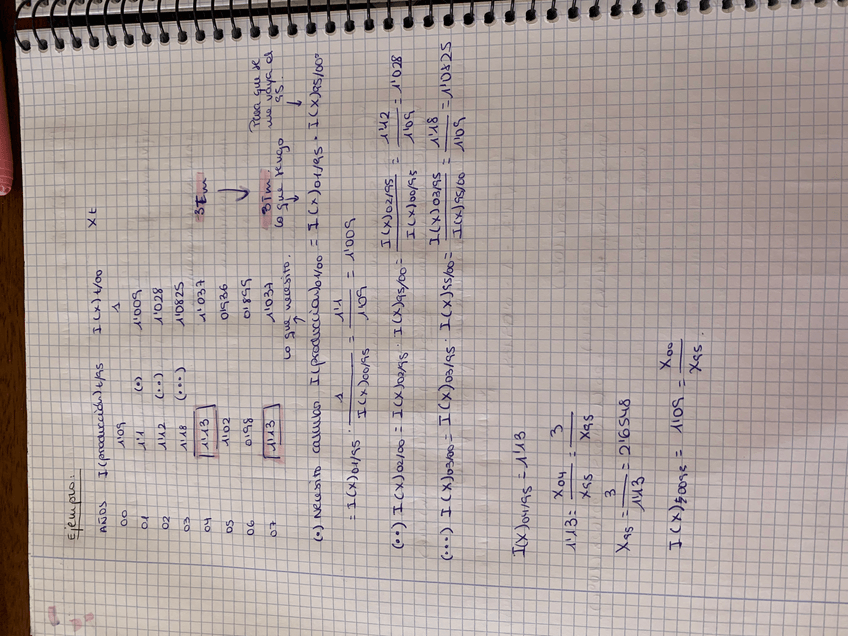 Ejemplo:
AÑOS I(producción)t/95 I(X)t/00 Xt
00 1'09 1
01 1'1 (•) 1'009
02 1'12 (••) 1'028
03 1'18 (•••) 1'0825
04 1'13 1'037 3Tm
05 1'02 0'936
06 0'98 0'899
07 1'13 1'037 3Tm.
lo que necesito. lo que tengo Para que se me vaya el 95.
(•) Necesito calcular I(producción)01/00 = I(X)01/95 · I(X)95/00=
= I(X)01/95 · 1/I(X)00/95 = 1'1/1'09 = 1'009
(••) I(X)02/00 = I(X)02/95 · I(X)95/00 = I(X)02/95/I(X)00/95 = 1'12/1'09 = 1'028
(•••) I(X)03/00 = I(X)03/95 · I(X)95/00 = I(X)03/95/I(X)95/00 = 1'18/1'09 = 1'0825
I(X)04/95 = 1'13
1'13 = X04/X95 = 3/X95
X95 = 3/1'13 = 2'6548
I(X)0095 = 1'09 = X00/X95.